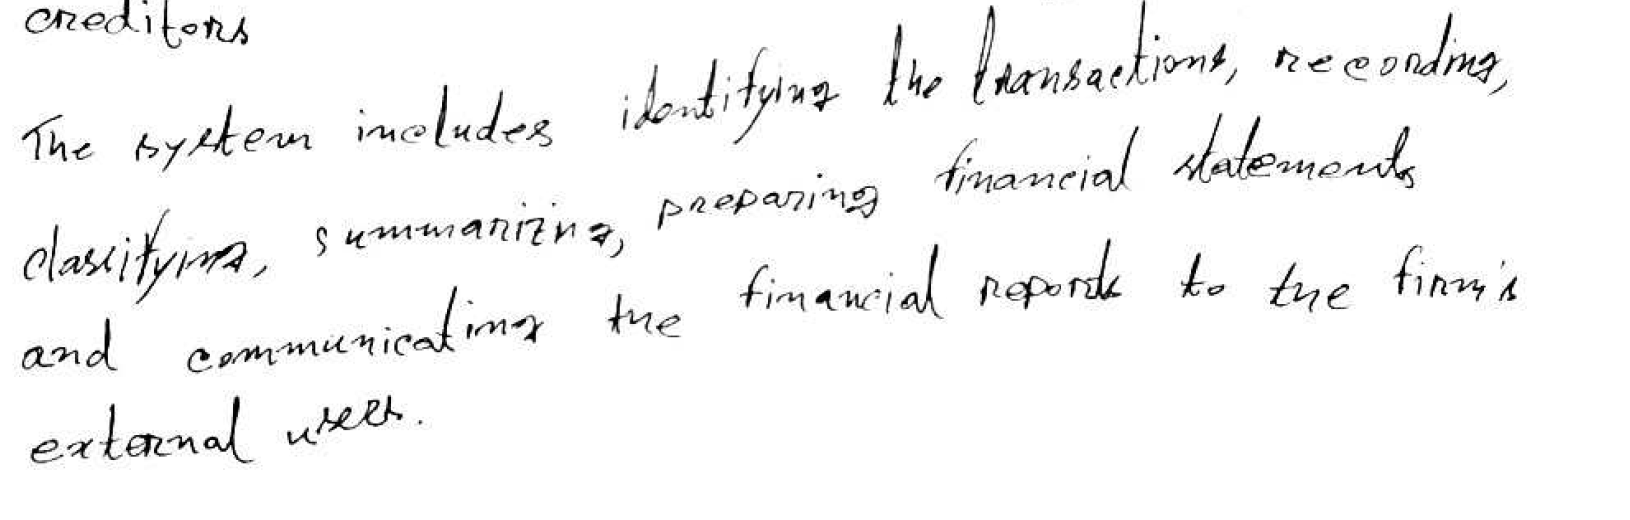 creditors
The system includes identifying the transactions, recording,
classifying, summarizing, preparing financial statements
and communicating the financial reports to the firm's
external users.